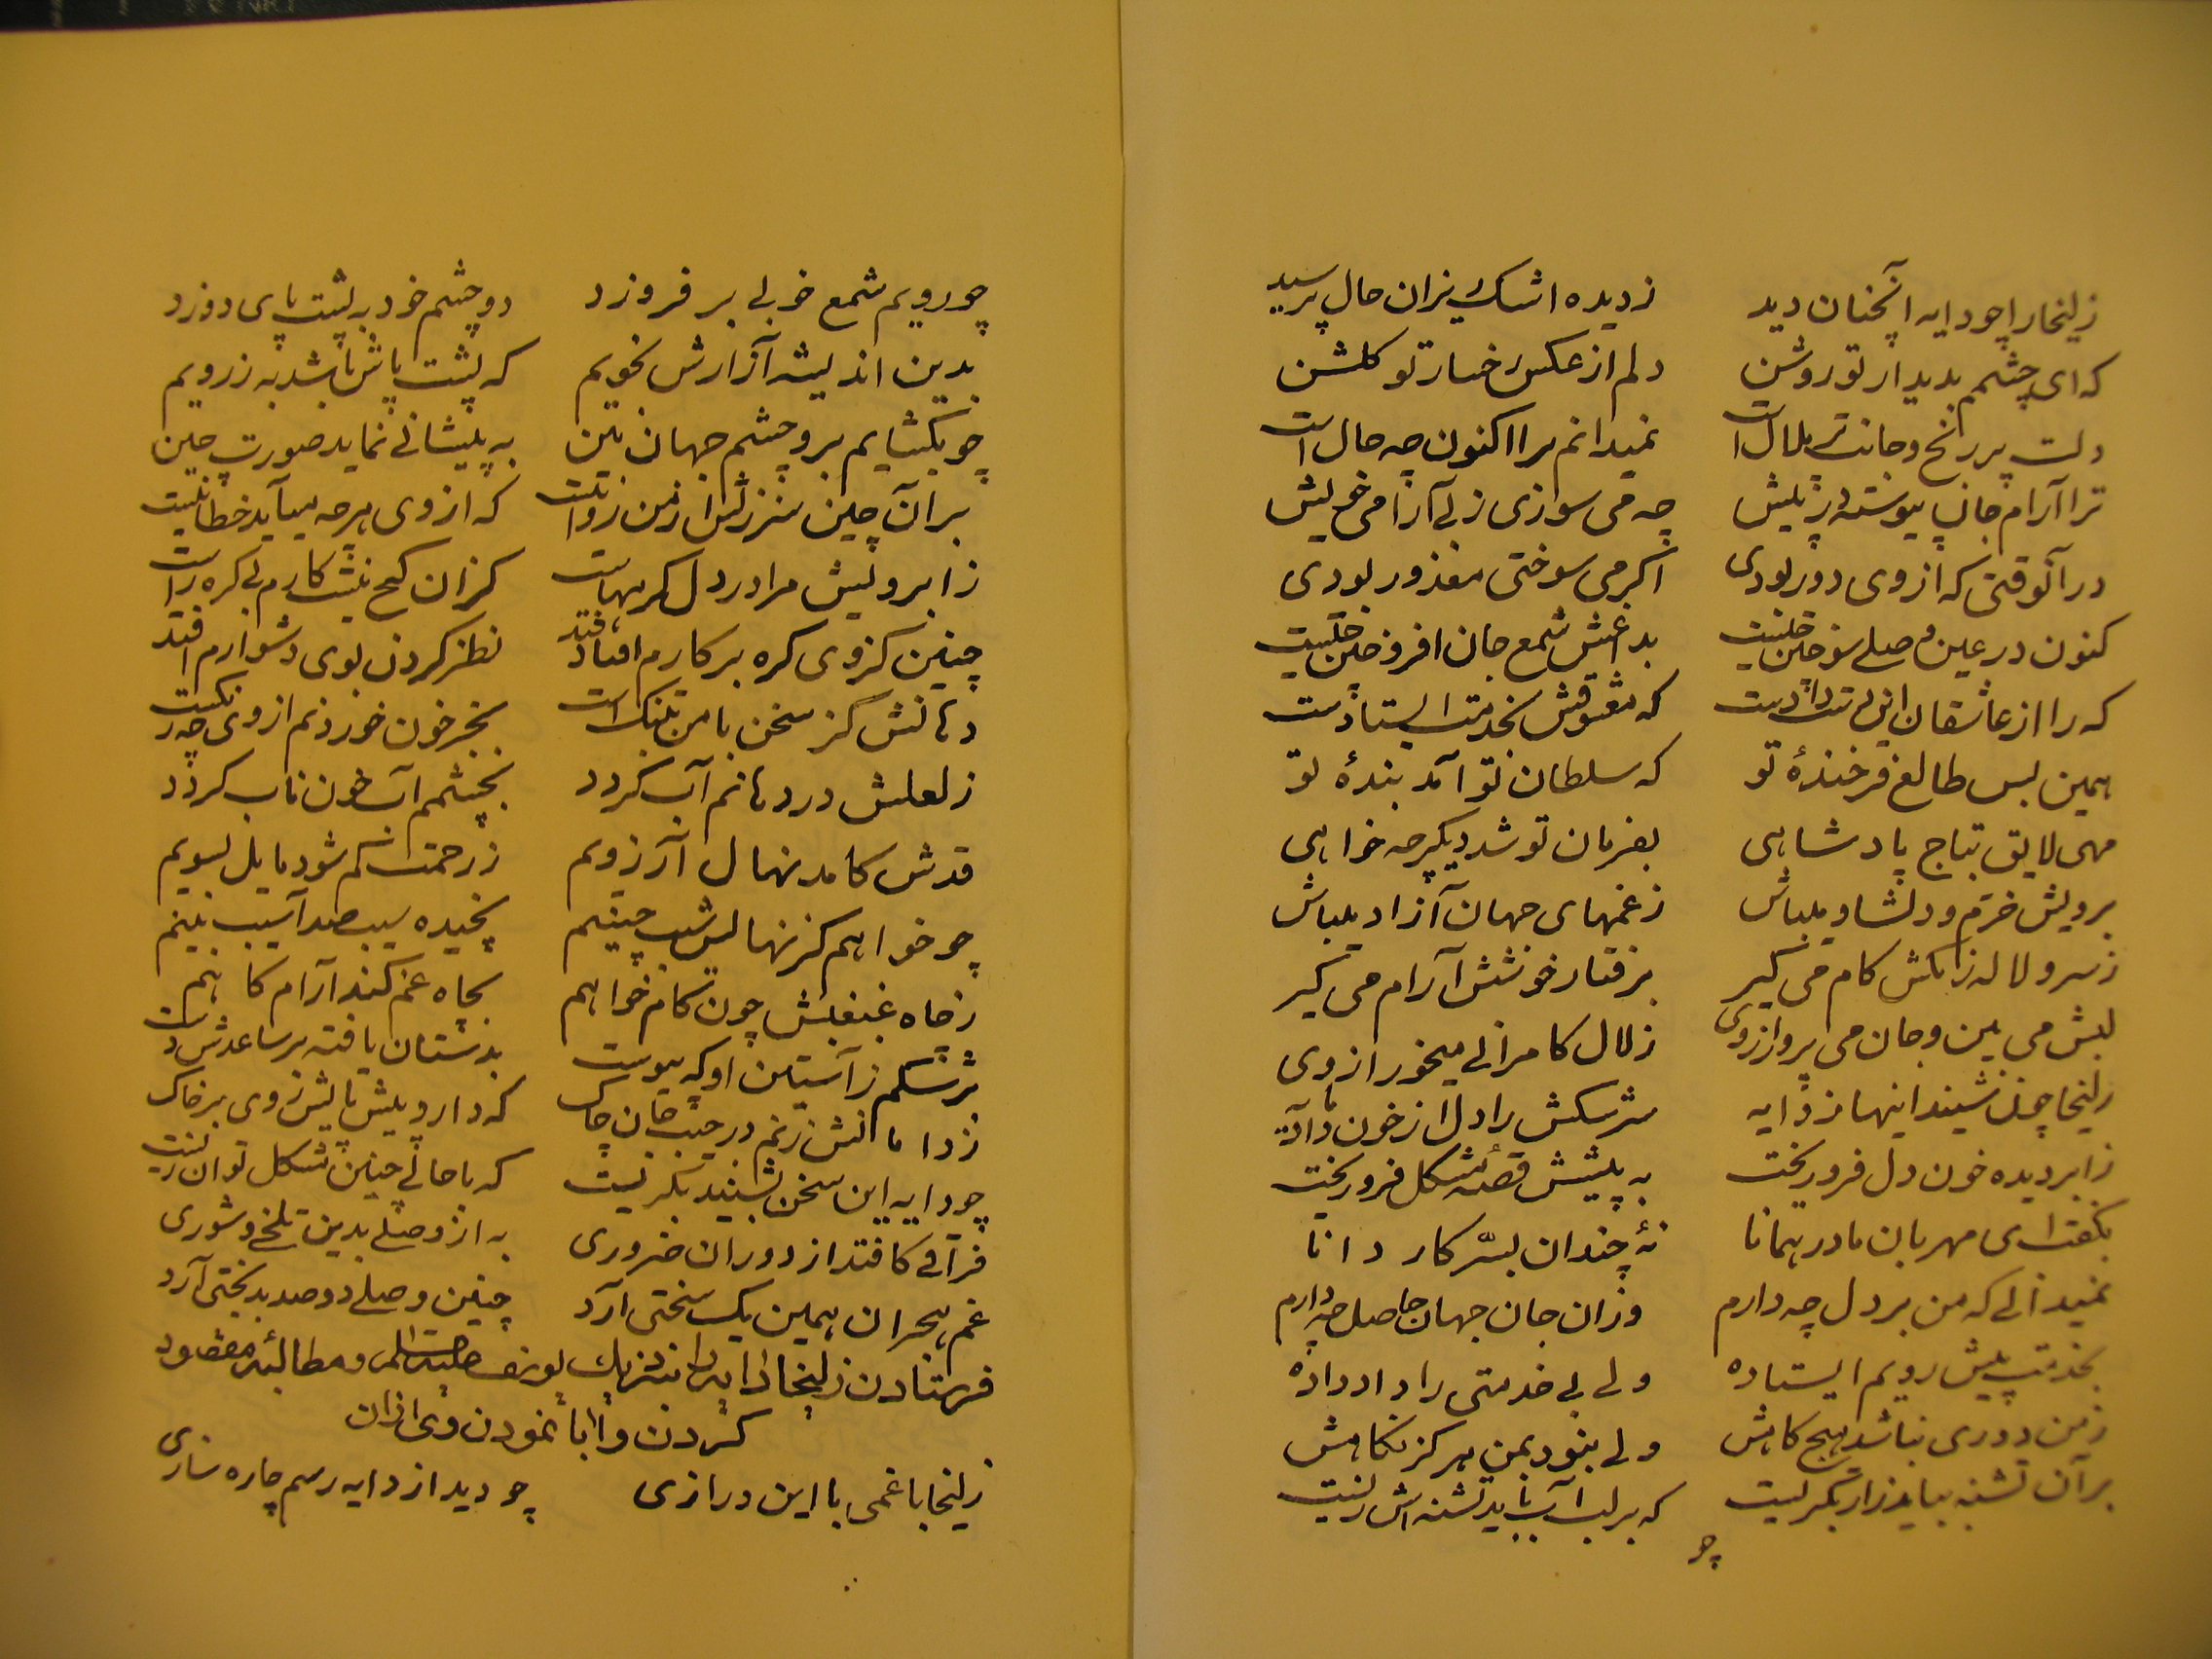 زلیخا را چو دایه آنچنان دید زدیده اشک ریزان حال پرسید
که ای چشمم بدیدار تو روشن دلم از عکس رخسار تو کلشن
دلت پر رنج و جانت پر ملال است نمیدانم ترا اکنون چه حال است
ترا آرام جان پیوسته در پیش چه می سوزی ز بی آرامی خویش
در آن وقتی که از وی دور بودی اکر می سوختی معذور بودی
کنون در عین وصلی سوختن چیست بداغش شمع جان افروختن چیست
که را از عاشقان این دست دادست که معشوقش بخدمت ایستادست
همین بس طالع فرخندهٔ تو که سلطان تو آمد بندهٔ تو
مهی لایق بتاج پادشاهی بفرمان تو شد دیکر چه خواهی
برویش خرّم و دلشاد میباش زغمهای جهان آزاد میباش
ز سرو لاله زاکش کام می کیر برفتار خوشش آرام می کیر
لبش می بین و جان می پرور از وی زلال کامرانی میخور از وی
زلیخا چون شنید اینها ز دایه سرشکش را دل از خون داد مایه
ز ابر دیده خون دل فرو ریخت به پیشش قصهٔ مشکل فرو ریخت
بکفت ای مهربان مادر همانا نهٔ چندان بسرّ کار دانا
نمیدانی که من بر دل چه دارم وزان جان جهان حاصل چه دارم
بخدمت پیش رویم ایستاده ولی بی خدمتی را داد داده
زمن دوری نباشد هیچ کاهش ولی نبود بمن هرکز نکاهش
بر آن تشنه بباید زار بکریست که بر لب آب باید تشنه اش زیست
چو
چو رویم شمع خوبی بر فروزد دو چشم خود به پشت پای دوزد
بدین اندیشه آزارش نجویم که پشت پاش باشد به ز رویم
چو بکشایم برو چشم جهان بین به پیشانی نماید صورت چین
بر آن چین سرزنش از من روا نیست که از وی هر چه میآید خطا نیست
ز ابرویش مرا در دل کرهاست کزان کج نیست کارم بی کره راست
چنین کز وی کره بر کارم افتاد نظر کردن بوی دشوارم افتد
دهانش کز سخن با من بتنک است بجز خون خوردنم از وی چه رنکست
ز لعلش در دهانم آب کردد بچشمم آب خون ناب کردد
قدش کامد نهال آرزویم ز رحمت کم شود مایل بسویم
چو خواهم کز نهالش سیب چینم نچیده سیب صد آسیب بینم
ز چاه غبغبش چون کام خواهم بچاه غم کند آرام کاهم
برشکم ز آستین او که پیوست بدستان یافته بر ساعدش دست
ز دامانش زنم در جیب جان چاک که دارد پیش پایش روی بر خاک
چو دایه این سخن بشنید بکریست که با حالی چنین مشکل توان زیست
فراقی کافتد از دوران ضروری به از وصلی بدین تلخی و شوری
غم هجران همین یک سختی آرد چنین وصلی دو صد بدبختی آرد
فرستادن زلیخا دایه را بنزدیک یوسف علیه السلم و مطالبهٔ مقصود
کردن و ابا نمودن وی از آن
زلیخا با غمی با این درازی چو دید از دایه رسم چاره سازی